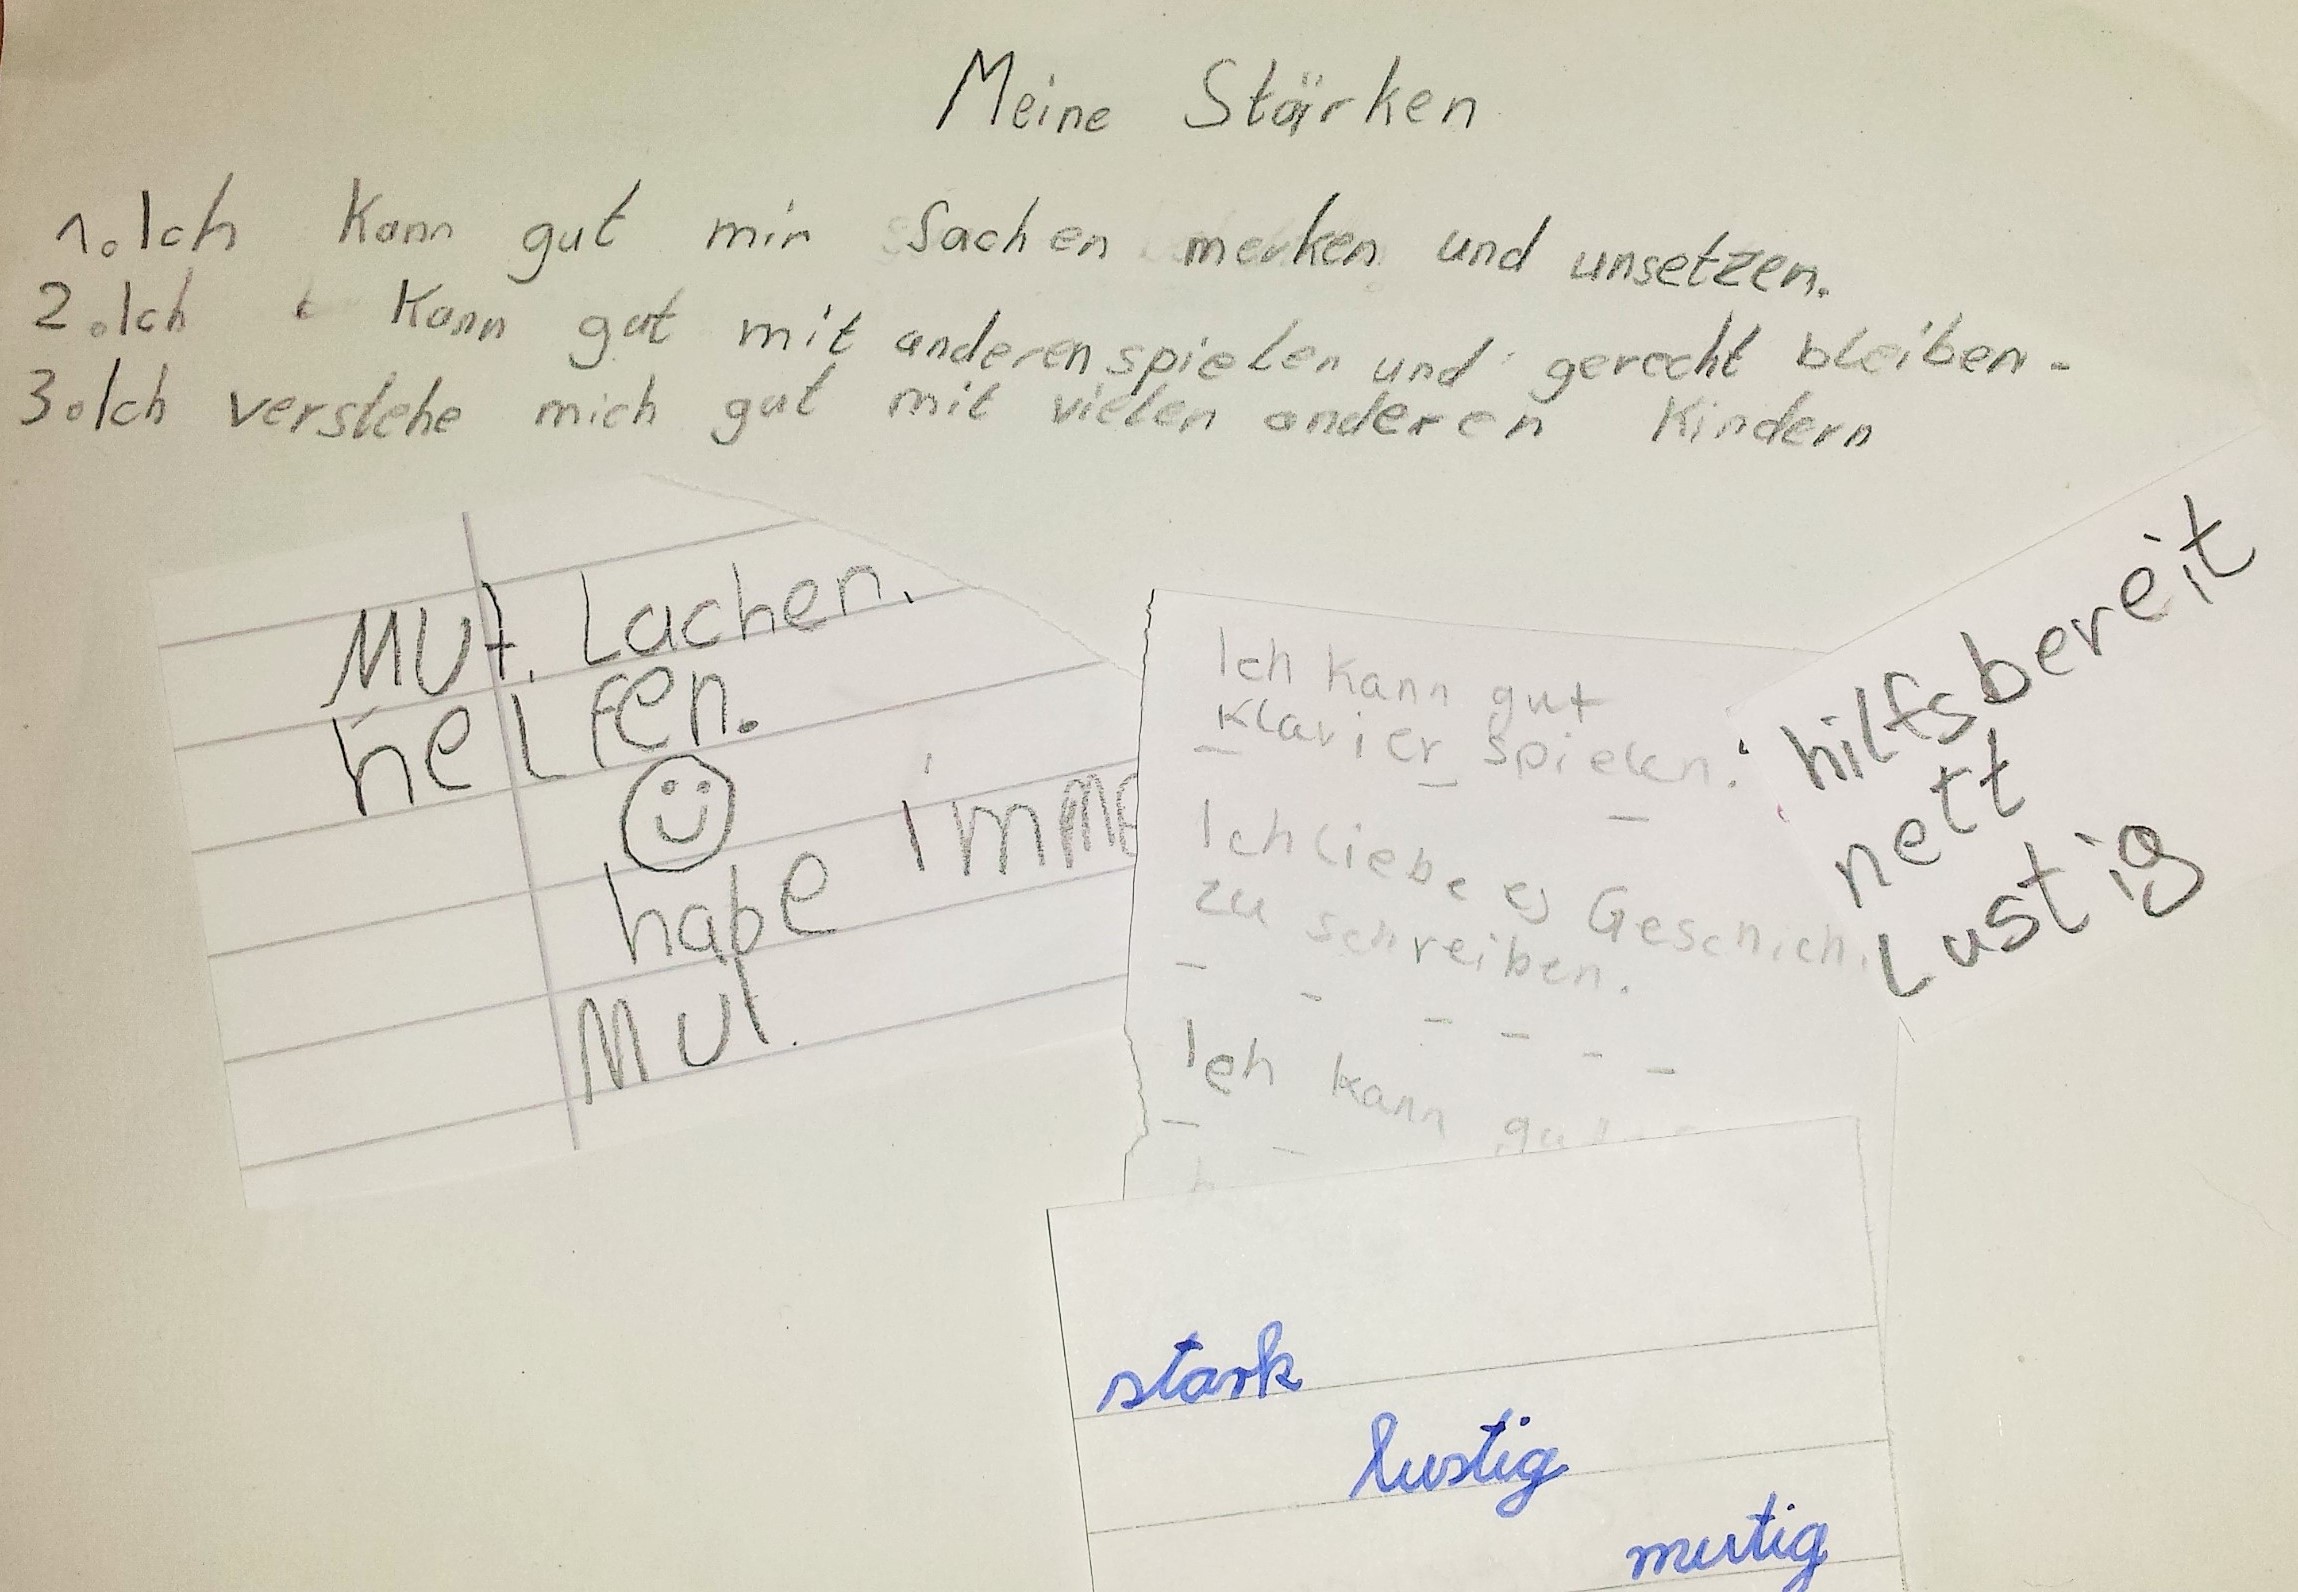 Meine Stärken
1. Ich kann gut mir Sachen merken und unsetzen.
2. Ich kann gut mit anderen spielen und gerecht bleiben.
3. Ich verstehe mich gut mit vielen anderen Kindern
Mut. Lachen.
helfen.
habe imme
Mut.
Ich kann gut
Klavier spielen.
Ich liebe es Geschich
zu schreiben.
Ich kann gut
hilfsbereit
nett
Lustig
stark
lustig
mutig